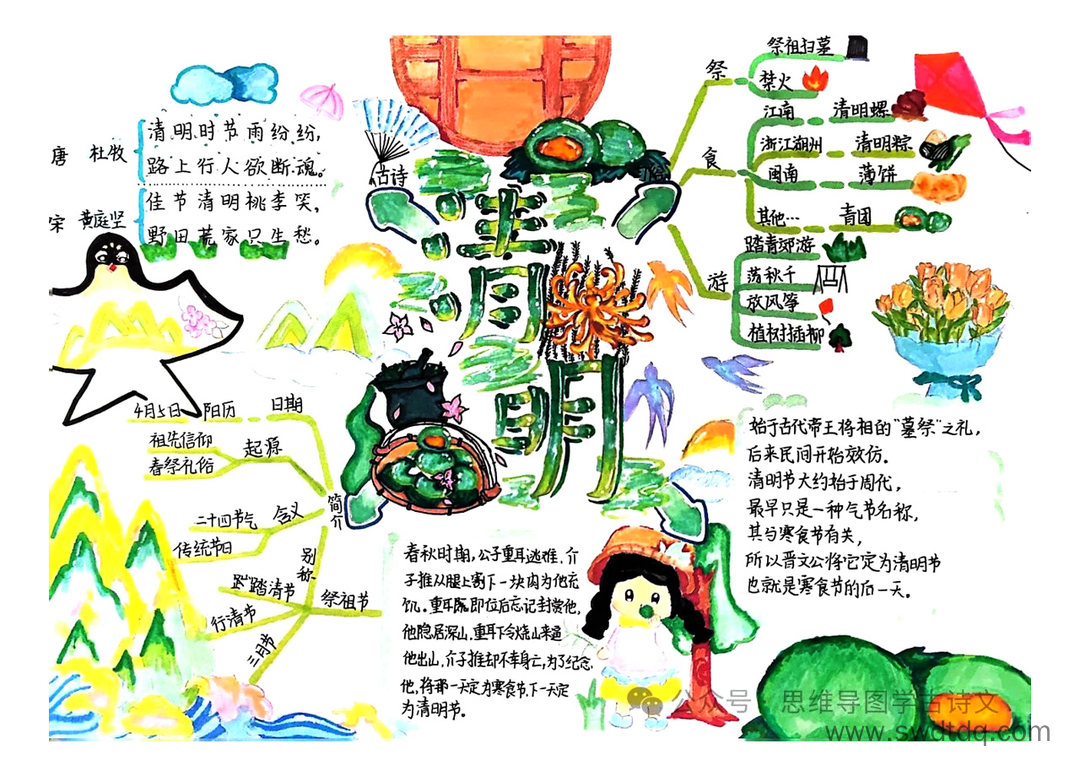 古诗
唐 杜牧
清明时节雨纷纷，
路上行人欲断魂。
宋 黄庭坚
佳节清明桃李笑，
野田荒家只生愁。
清明
祭
祭祖扫墓
禁火
食
江南 清明螺
浙江湖州 清明粽
闽南 薄饼
其他… 青团
游
踏青郊游
荡秋千
放风筝
植树插柳
简介
4月5日 阳历 日期
祖先信仰
春祭礼俗
起源
二十四节气
传统节日
含义
别称
踏清节
行清节
三月节
祭祖节
春秋时期，公子重耳逃难，介
子推从腿上割下一块肉为他充
饥。重耳即位后忘记封赏他，
他隐居深山，重耳下令烧山来逼
他出山，介子推却不幸身亡，为了纪念
他，将那一天定为寒食节，下一天定
为清明节。
始于古代帝王将相的"墓祭"之礼，
后来民间开始效仿。
清明节大约始于周代，
最早只是一种气节名称，
其与寒食节有关，
所以晋文公将它定为清明节
也就是寒食节的后一天。
公众号 思维导图学古诗文
www.swdtdq.com